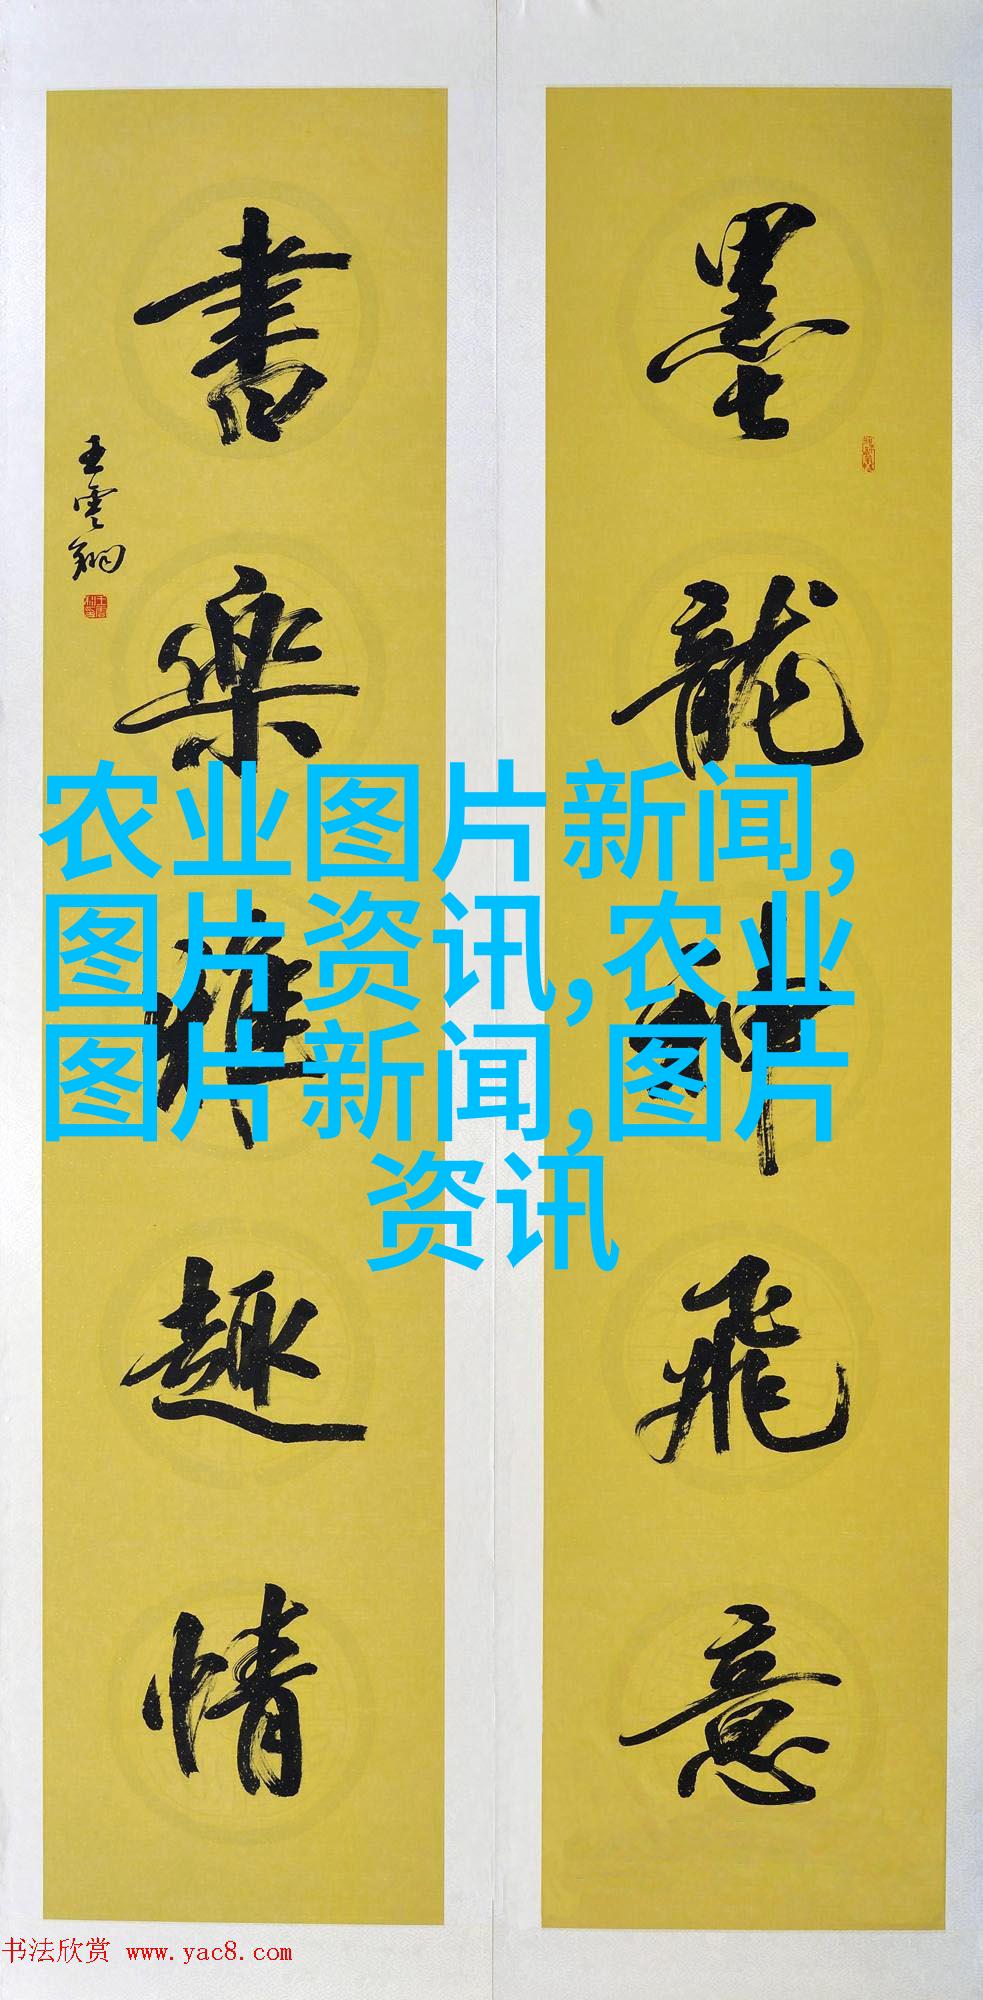 墨龍神飛意
書樂雅趣情
王雲翔
农业图片新闻,
图片资讯,农业
图片新闻,图片
资讯
书法欣赏 www.yac8.com